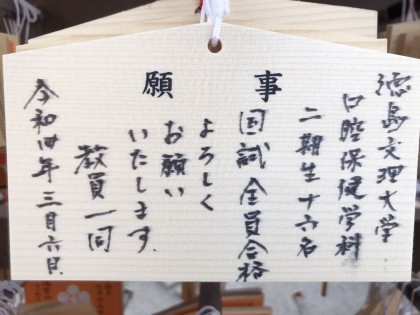 願事
徳島文理大学
口腔保健学科
二期生十六名
国試全員合格
よろしく
お願い
いたします。
教員一同
令和四年三月六日